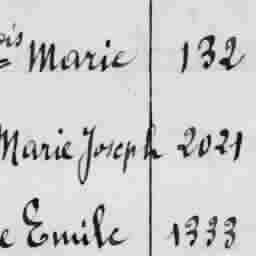 ois Marie 132
Marie Joseph 2021
e Emile 1333